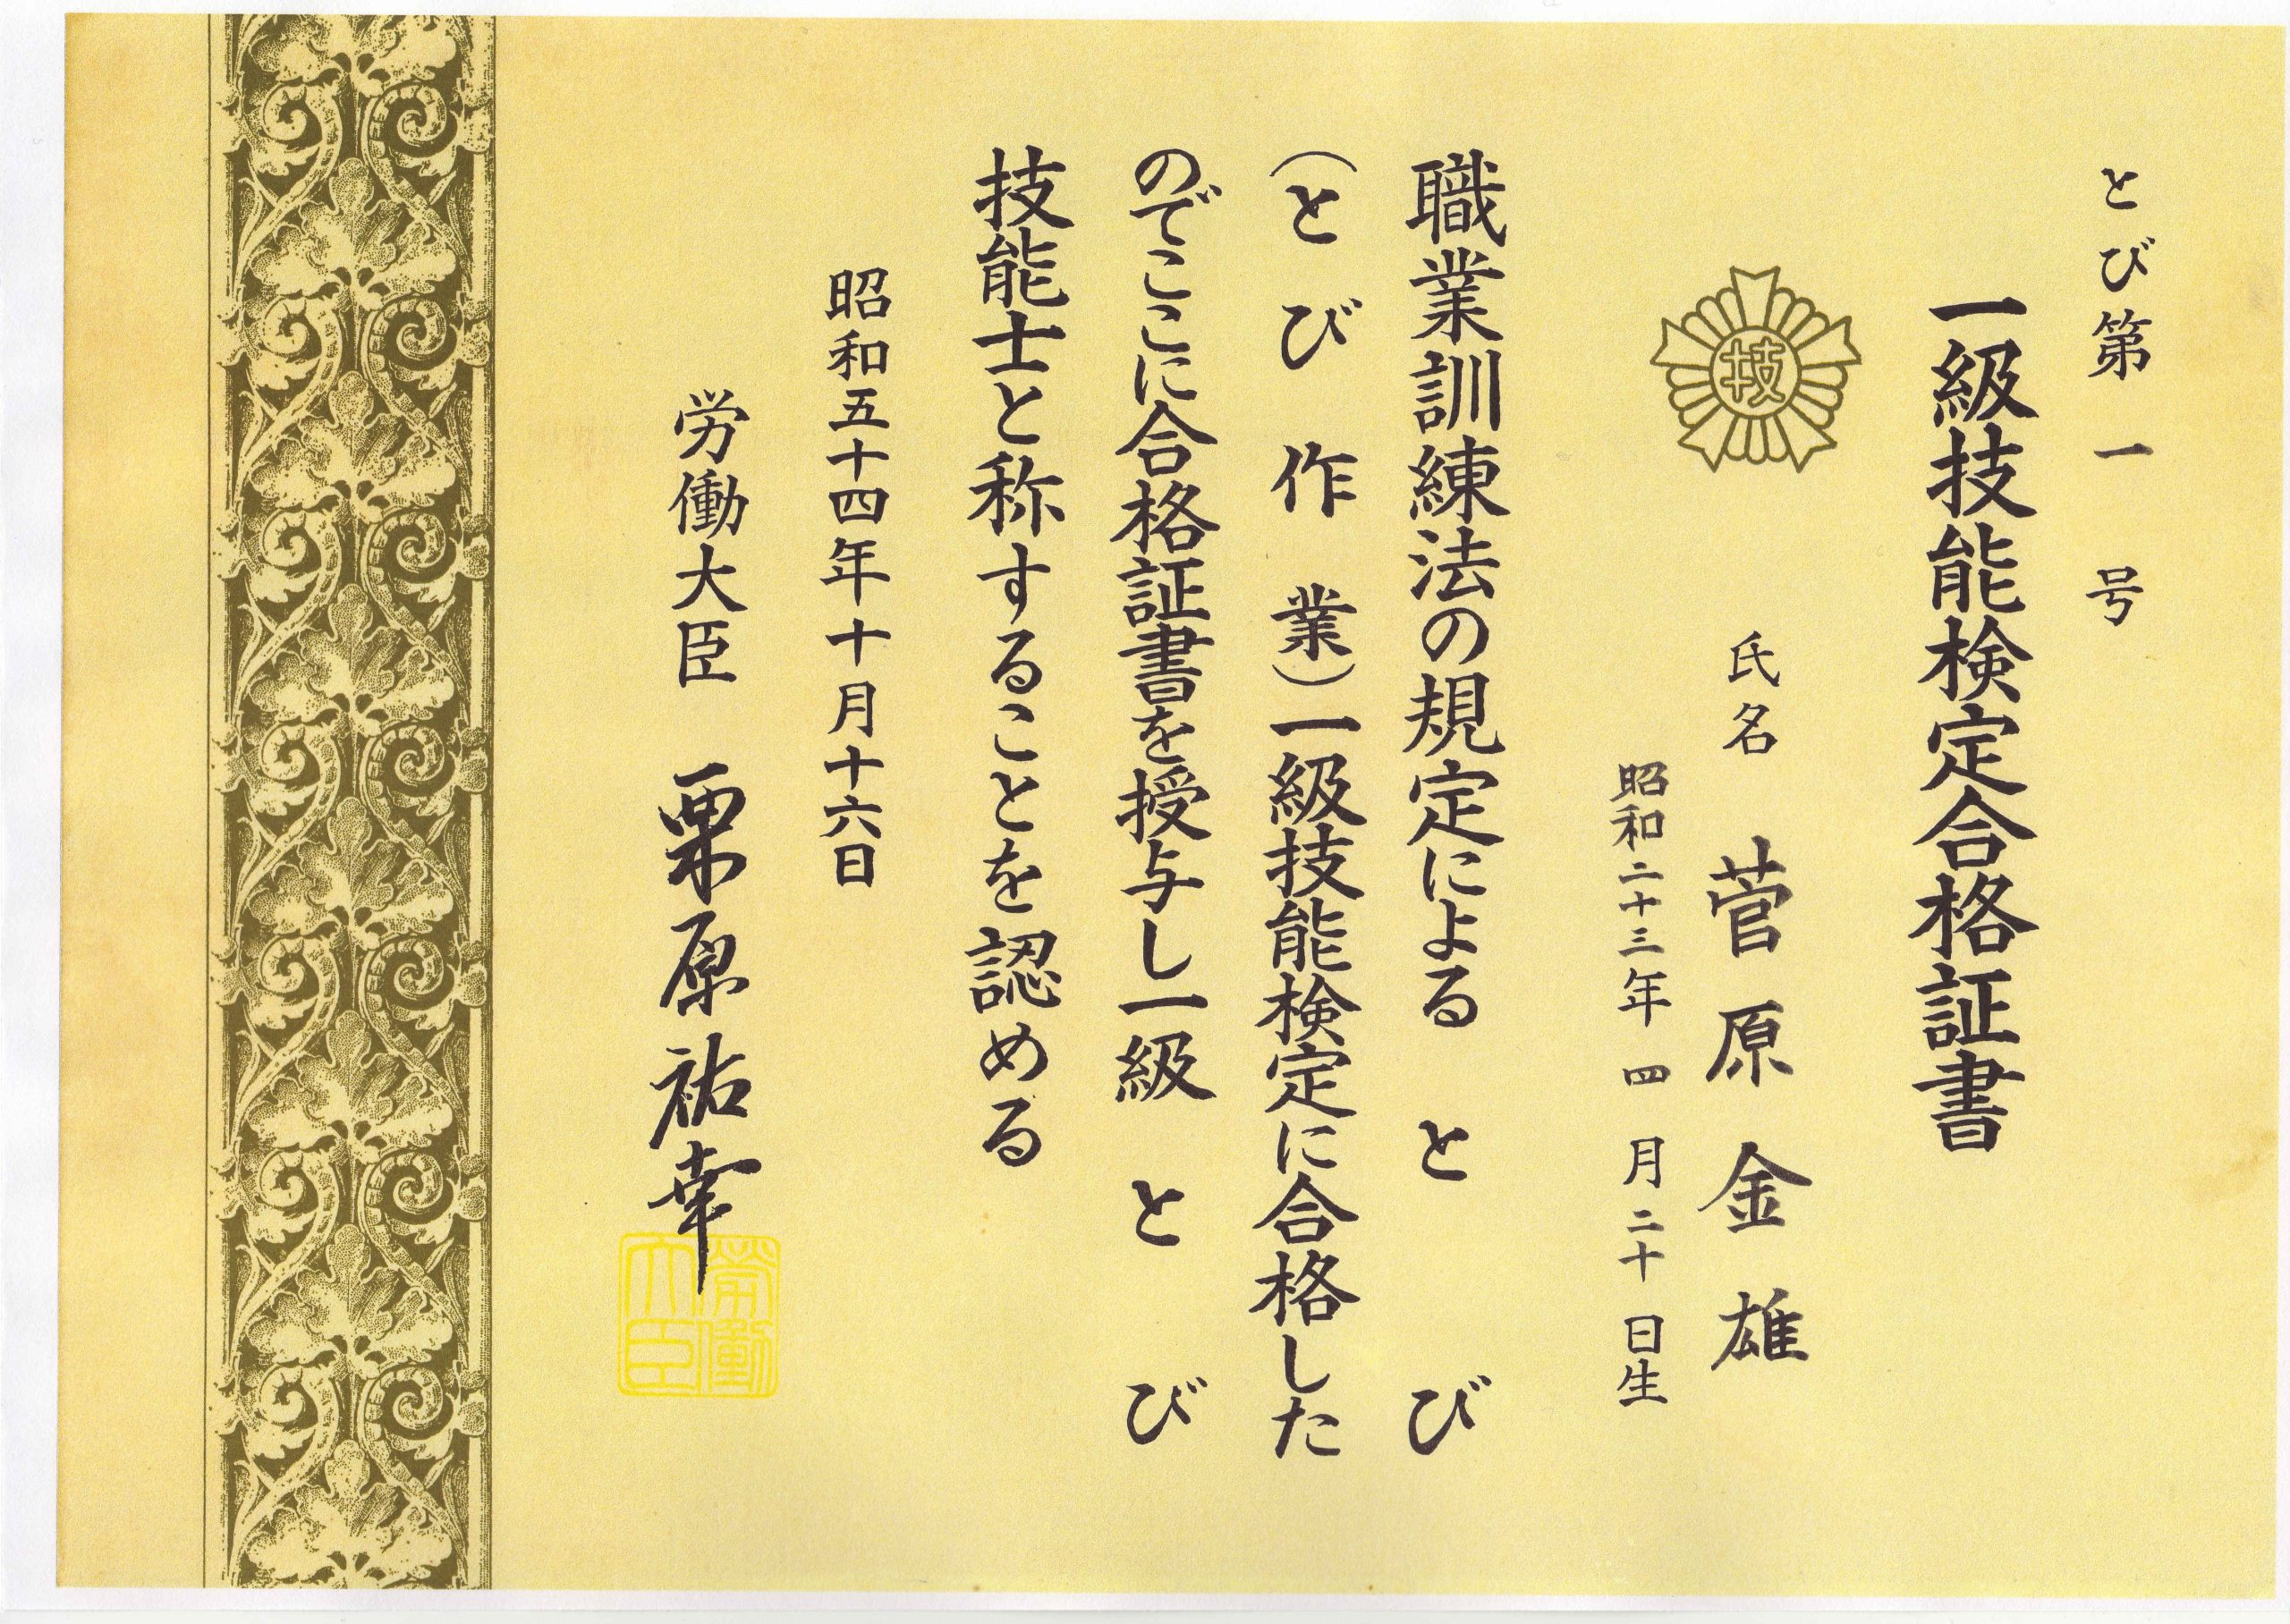 とび第一号
一級技能検定合格証書
技
氏名 菅原金雄
昭和二十三年四月二十日生
職業訓練法の規定によるとび
(とび作業)一級技能検定に合格した
のでここに合格証書を授与し一級とび
技能士と称することを認める
昭和五十四年十月十六日
労働大臣 栗原祐幸
労働
大臣